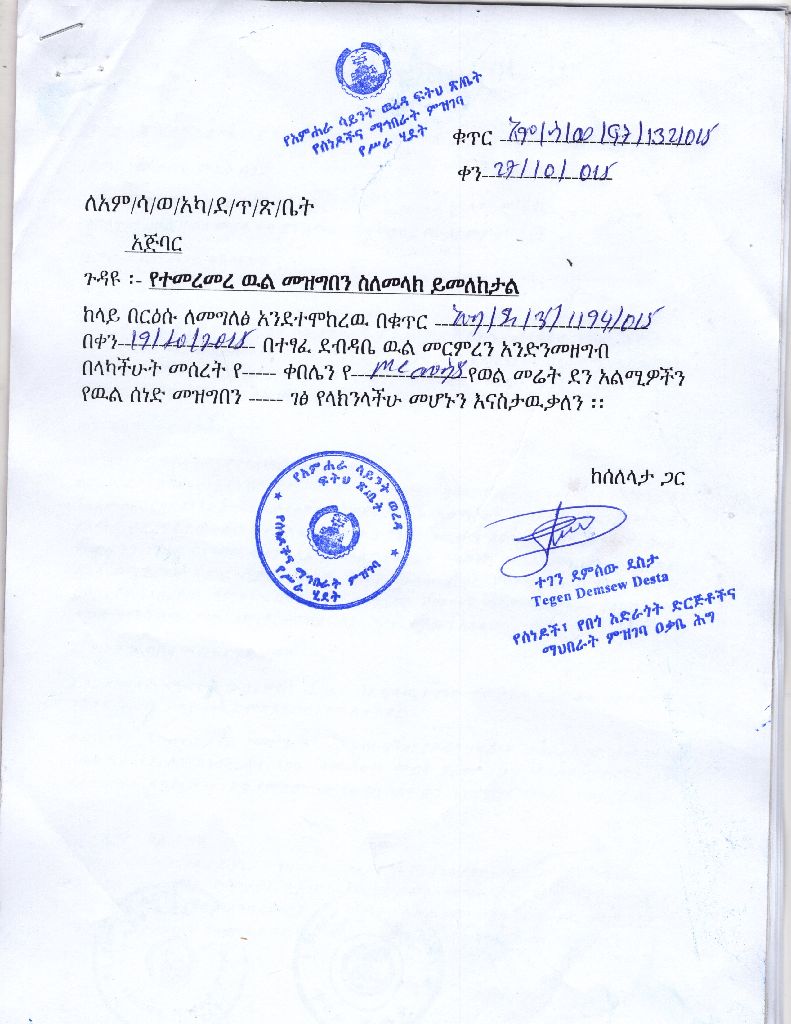 የአምሐራ ሳይንት ወረዳ ፍትህ ጽ/ቤት
የሰነዶችና ማኅበራት ምዝገባ
የሥራ ሂደት
ቁጥር አም/ሳ/ወ/ፍት/132/015
ቀን 27/10/015
ለአም/ሳ/ወ/አካ/ደ/ጥ/ጽ/ቤት
አጅባር
ጉዳዩ ፡- የተመረመረ ዉል መዝግበን ስለመላክ ይመለከታል
ከላይ በርዕሱ ለመግለፅ እንደተሞከረዉ በቁጥር /1194/015
በቀን 19/10/2015 በተፃፈ ደብዳቤ ዉል መርምረን እንድንመዘግብ
በላካችሁት መሰረት የ----- ቀበሌን የ የወል መሬት ደን አልሚዎችን
የዉል ሰነድ መዝግበን ----- ገፅ የላክንላችሁ መሆኑን እናስታዉቃለን ፡፡
ከሰለላታ ጋር
የአምሐራ ሳይንት ወረዳ
ፍትህ ጽ/ቤት
የሰነዶችና ማኅበራት ምዝገባ
የሥራ ሂደት
ተገን ደምሰው ደስታ
Tegen Demsew Desta
የሰነዶች፣ የበጎ አድራጎት ድርጅቶችና
ማህበራት ምዝገባ ዐቃቤ ሕግ